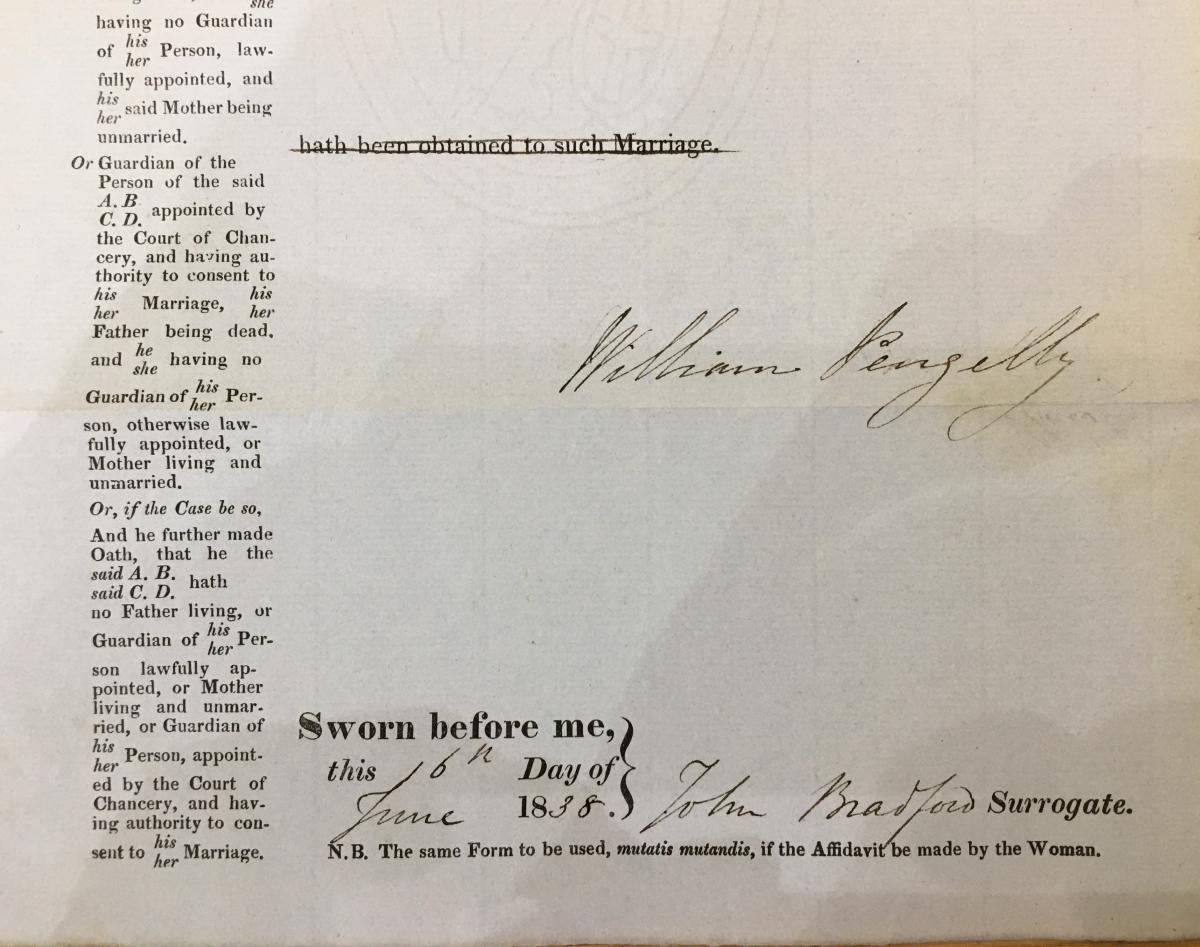 she
having no Guardian
of his her Person, law-
fully appointed, and
his her said Mother being
unmarried.
Or Guardian of the
Person of the said
A. B. C. D. appointed by
the Court of Chan-
cery, and having au-
thority to consent to
his her Marriage, his her
Father being dead,
and he she having no
Guardian of his her Per-
son, otherwise law-
fully appointed, or
Mother living and
unmarried.
Or, if the Case be so,
And he further made
Oath, that he the
said A. B. said C. D. hath
no Father living, or
Guardian of his her Per-
son lawfully ap-
pointed, or Mother
living and unmar-
ried, or Guardian of
his her Person, appoint-
ed by the Court of
Chancery, and hav-
ing authority to con-
sent to his her Marriage.
hath been obtained to such Marriage.
William Pengelly
Sworn before me,
this 16th Day of
June 1838. John Bradford Surrogate.
N.B. The same Form to be used, mutatis mutandis, if the Affidavit be made by the Woman.